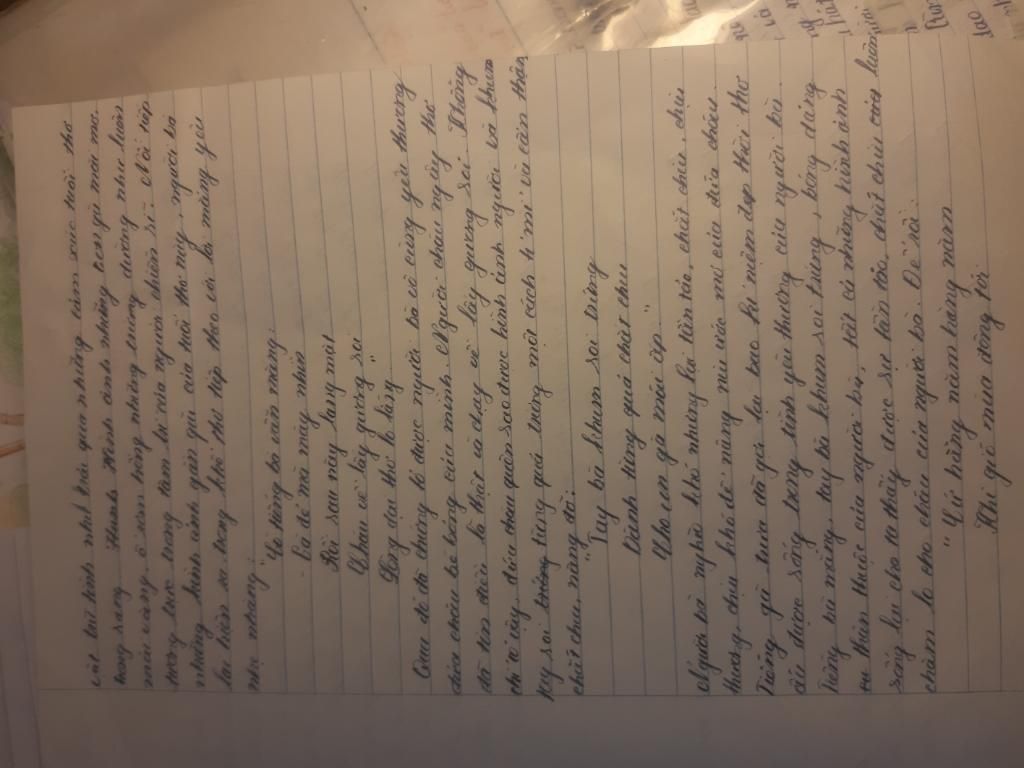 viết tất bình nhất trải qua những cảm xúc tuổi thơ
trong sáng. Hình ảnh những con gà mái mơ,
mái vàng, ổ rơm hồng những trứng dường như luôn
trong tâm trí của người chiến sĩ. Nối tiếp
những hình ảnh gần gũi của tuổi thơ này, người bà
lại hiện ra trong khổ thơ tiếp theo với lời mắng yêu
nhẹ nhàng.
"Có tiếng bà vẫn mắng
Gà đẻ mà mày nhìn
Rồi sau này lang mặt
Cháu về lấy gương soi
Lòng dại thơ lo lắng."
Qua đó đã chứng tỏ được người bà vô cùng yêu thương
đứa cháu bé bỏng của mình. Người cháu ngây thơ
đã tin điều là thật và chạy về lấy gương soi. Không
chỉ vậy, đứa cháu quan sát được hình ảnh người bà khum
tay soi trứng từng quả trứng một cách tỉ mỉ và cẩn thận,
chắt chiu
"Tay bà khum soi trứng
Dành từng quả chắt chiu
Cho con gà mái ấp."
Người bà nghèo khó nhưng lại tần tảo, chắt chiu, chịu
thương, chịu khó để nâng niu ước mơ của đứa cháu.
Tiếng gà trưa đã gợi lại bao kỉ niệm đẹp thời thơ
ấu được sống trong tình yêu thương của người bà.
Tiếng bà mắng, tay bà khum soi trứng, bóng dáng
thân thuộc của người bà, tất cả những hình ảnh
sống lại cho ta thấy được sự tần tảo, chắt chiu và luôn
chăm lo cho cháu của người bà. Để rồi:
"Cứ hằng năm hằng năm
Khi gió mùa đông tới